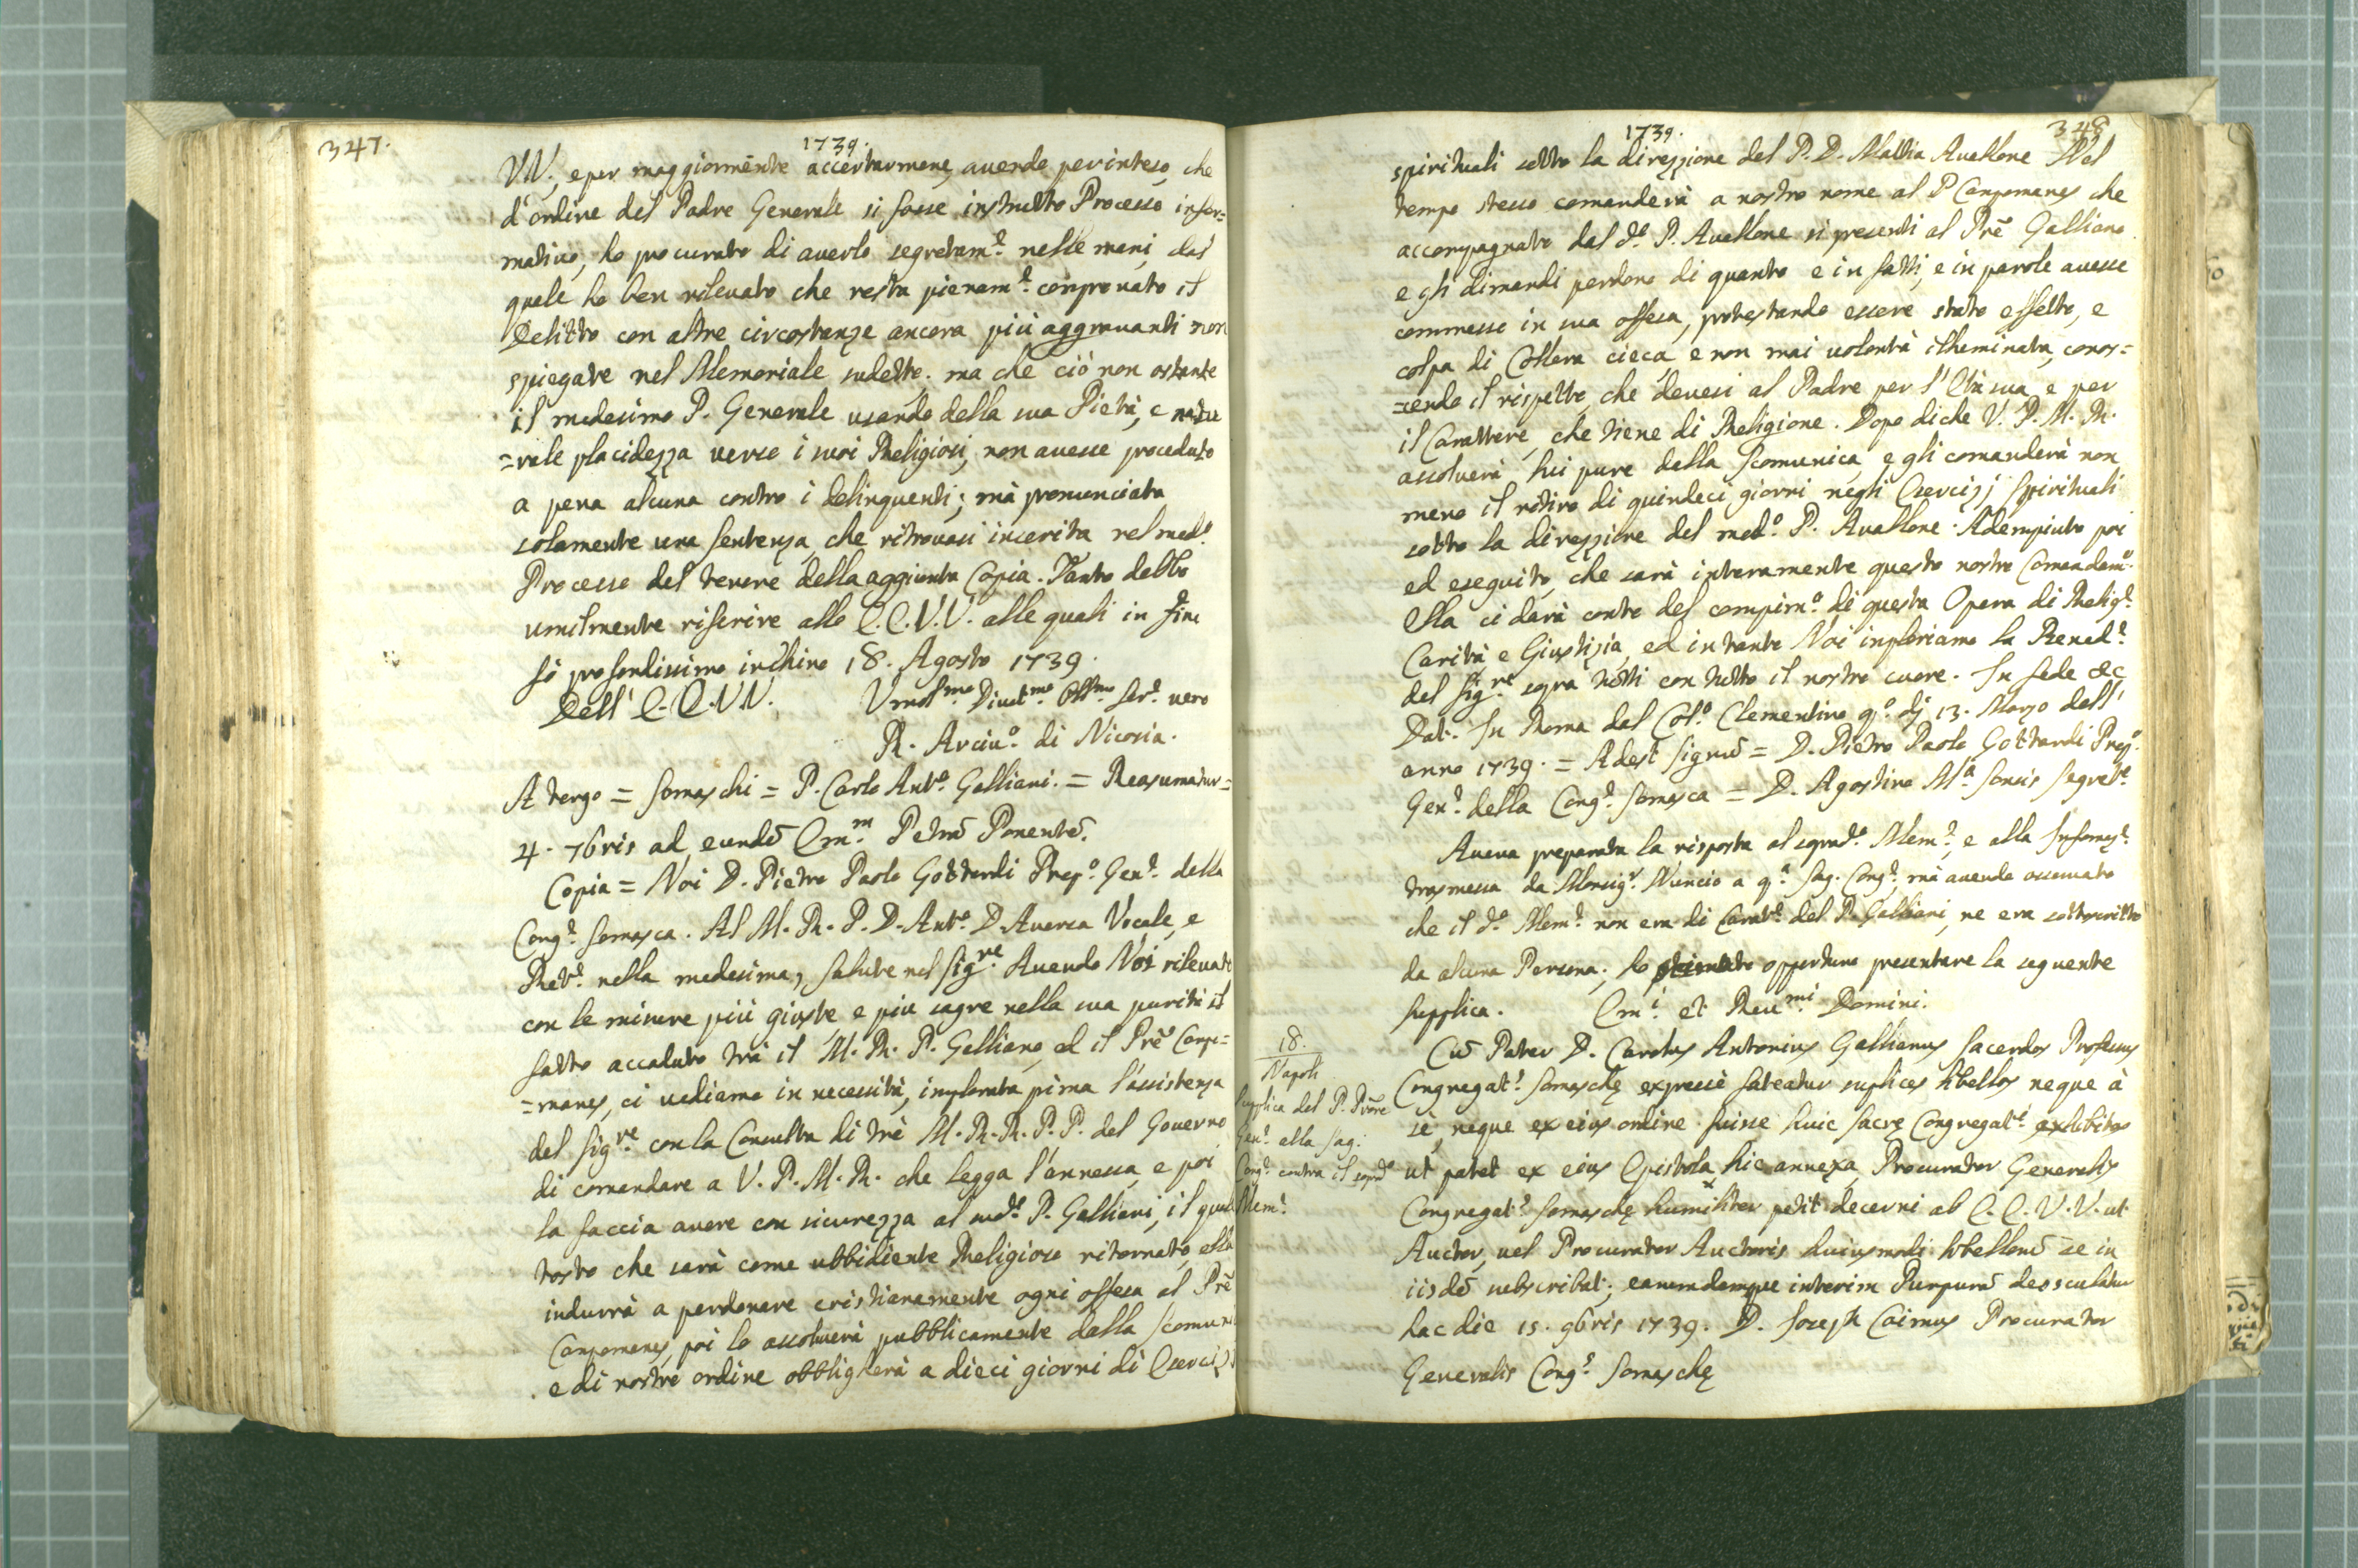 347.
1739.
VV., e per maggiorm̃ente accertarmene, avendo perinteso, che
d'ordine del Padre Generale si fosse instrutto Processo infor=
mativo, ho procurato di averlo segretam.e nelle mani, dal
quale ho ben rilevato che resta pienam.e comprovato il
Delitto con altre circostanze ancora più aggravanti non
spiegate nel Memoriale sudetto. ma che ciò non ostante
il medesimo P. Generale usando della sua Pietà, e natu
=rale placidezza verso i suoi Religiosi, non avesse proceduto
a pena alcuna contro i delinquenti; mà pronunciata
solamente una sentenza, che ritrovasi inserita nel med.o
Processo del tenore della aggiunta Copia. Tanto debbo
umilmente riferire alle E.E.V.V. alle quali in fine
fò profondissimo inchino 18. Agosto 1739.
Dell' E.E.VV. Umol.mo Divot.mo Obb.mo Ser.e vero
R. Arciv.o di Nicosia.
A tergo = Somaschi = P. Carlo Ant.o Galliani. = Reasumatur=
4. 7bris ad eundẽ Em.m Petrũ Ponentẽ.
Copia = Noi D. Pietro Paolo Gottardi Prep.o Gen.e della
Cong.e Somasca. Al M. R. P. D. Ant.o D. Aversa Vocale, e
Ret.e nella medesima, salute nel Sig.re Avendo Noi rilevato
con le misure più giuste e più sagre nella sua purità il
fatto accaduto trà il M. R. P. Galliano, ed il Prẽ Campo=
=manes, ci vediamo in necessità, implorata pima l'assistenza
del Sig.re con la Consulta di trè M. R. R. P. P. del Governo
di comandare a V. P. M. R. che legga l'annessa, e poi
la faccia avere con sicurezza al sud.o P. Galliani, il quale
tosto che sarà come ubbidiente Religioso ritornato, ella
indurrà a perdonare cristianamente ogni offesa al Prẽ
Campomanes, poi lo assolverà pubblicamente dalla scomuni
e di nostro ordine obbligherà a dieci giorni di Esercizi
348
1739.
spirituali sotto la direzzione del P. D. Mattia Avallone Nel
tempo stesso comanderà a nostro nome al P Campomanes che
accompagnato dal d.o P. Avallone si presenti al Prẽ Galliano
e gli dimandi perdono di quanto e in fatti, e in parole avesse
commesso in sua offesa, protestando essere stato effetto, e
colpa di Collera cieca, e non mai volontà illuminata, conos=
=cendo il rispetto, che devesi al Padre per l'Età sua, e per
il Carattere, che tiene di Religione. Dopo di che V. P. M. R.
assolverà lui pure dalla scomunica, e gli comanderà non
meno il ritiro di quindeci giorni negli Esercizj spirituali
sotto la direzzione del med.o P. Avallone. Adempiuto poi
ed eseguito, che sarà interamente questo nostro Comandam.o
Ella ci darà conto del compim.o di questa Opera di Relig.e
Carità, e Giustizia, ed intanto Noi imploriamo la Bened.e
del Sig.re sopra tutti con tutto il nostro cuore. In fede &c
Dat. In Roma dal Col.o Clementino q.o dj 13. Marzo dell'
anno 1739. = Adest Signũ = D. Pietro Paolo Gottardi Prep.o
Gen.e della Cong.e Somasca = D. Agostino M.a Sonsis Segret.o
Aveva preparata la risposta al soprad.o Mem.e, e alla Informaz.e
trasmessa da Monsig.r Nuncio a q.a Sag. Cong.e, mà avendo osservato
che il d.o Mem.e non era di Carat.e del P. Galliani, ne era sottoscritto
da alcuna Persona, ho stimato opportuno presentare la seguente
supplica. Em.i et Rev.mi Domini.
18.
Napoli
Supplica del P. Prõre
Gen.e alla Sag.
Cong.e contra il soprad.o
Mem.e
Cũ Pater D. Carolus Antonius Gallianus Sacerdos Professus
Congregat.s Somaschę expressè fateatur suplices libellos neque à
sè, neque ex eius ordine fuisse huic Sacrę Congregat.i exhibitos
ut patet ex eius Epistola hic annexa, Procurator Generalis
Congregat.s Somaschę humiliter petit decerni ab E.E.V.V. ut
Auctor, vel Procurator Auctoris huiusmodi libellorũ se in
iisdẽ subscribat; earumdemque interim Purpurã deosculatur
hac die 15. 9bris 1739. D. Joseph Caimus Procurator
Generalis Cong.s Somaschę